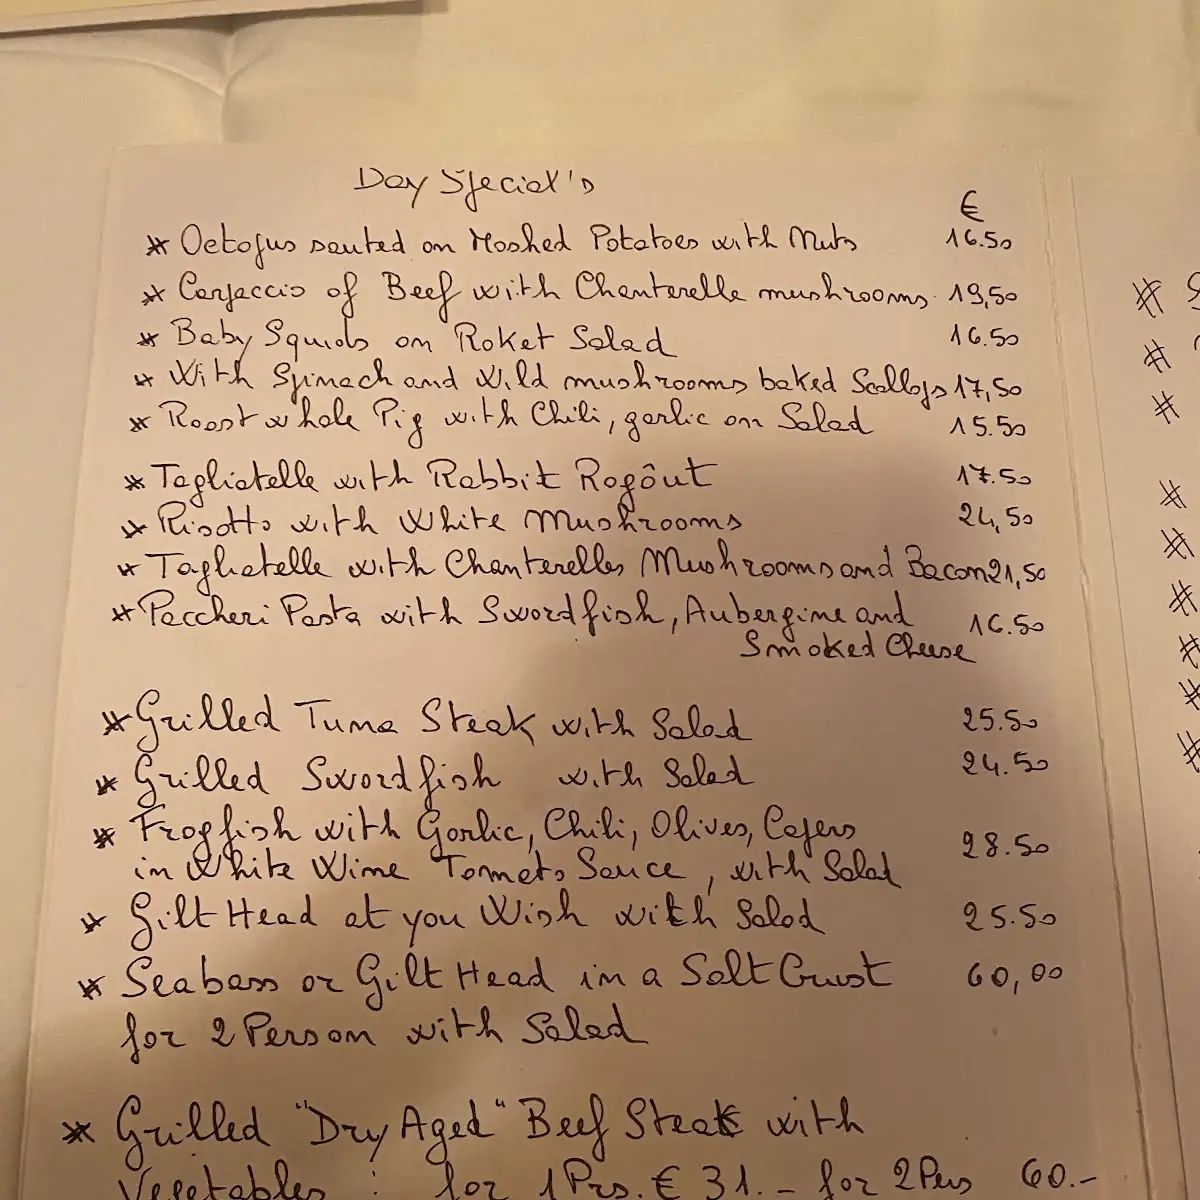 Day Special's
€
* Octopus sauted on Moshed Potatoes with Nuts 16.50
* Carpaccio of Beef with Chanterelle mushrooms 19,50
* Baby Squids on Roket Salad 16.50
* With Spinach and Wild mushrooms baked Scallops 17,50
* Roast whole Pig with Chili, garlic on Salad 15.50
* Tagliatelle with Rabbit Rogôut 17.50
* Risotto with White Mushrooms 24,50
* Tagliatelle with Chanterelles Mushrooms and Bacon 21,50
* Paccheri Pasta with Swordfish, Aubergine and 16.50
Smoked Cheese
* Grilled Tuna Steak with Salad 25.50
* Grilled Swordfish with Salad 24.50
* Frogfish with Garlic, Chili, Olives, Capers
in White Wine Tomato Sauce, with Salad 28.50
* Gilt Head at you Wish with Salad 25.50
* Seabass or Gilt Head in a Salt Crust 60,00
for 2 Person with Salad
* Grilled "Dry Aged" Beef Steak with
Vegetables : for 1 Prs. € 31.- for 2 Pers 60.-